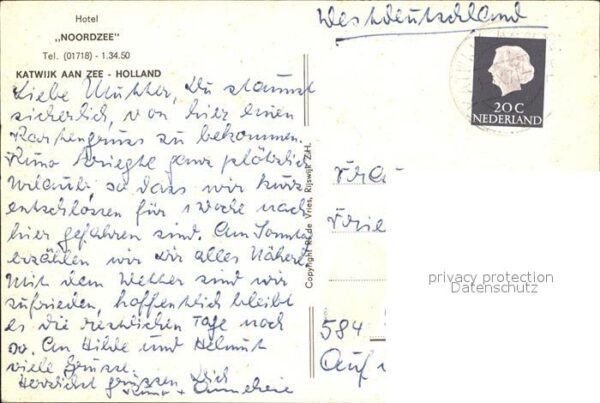 Hotel
„NOORDZEE"
Tel. (01718) - 1.34.50
KATWIJK AAN ZEE - HOLLAND
Westdeutschland
20 C
NEDERLAND
Liebe Mutter, Du staunst
sicherlich, von hier einen
Kartengruss zu bekommen.
kriegte ganz plötzlich
Urlaub, so dass wir kurz
entschlossen für 1 Woche nach
hier gefahren sind. Am Sonntag
erzählen wir Dir alles Nähere.
Mit dem Wetter sind wir
zufrieden, hoffentlich bleibt
es die restlichen Tage noch
so. An Hilde und Helmut
viele Grüsse.
Herzlichst grüssen Dich
Copyright R. de Vries, Rijswijk Z.H.
Frau
584
Auf
privacy protection
Datenschutz